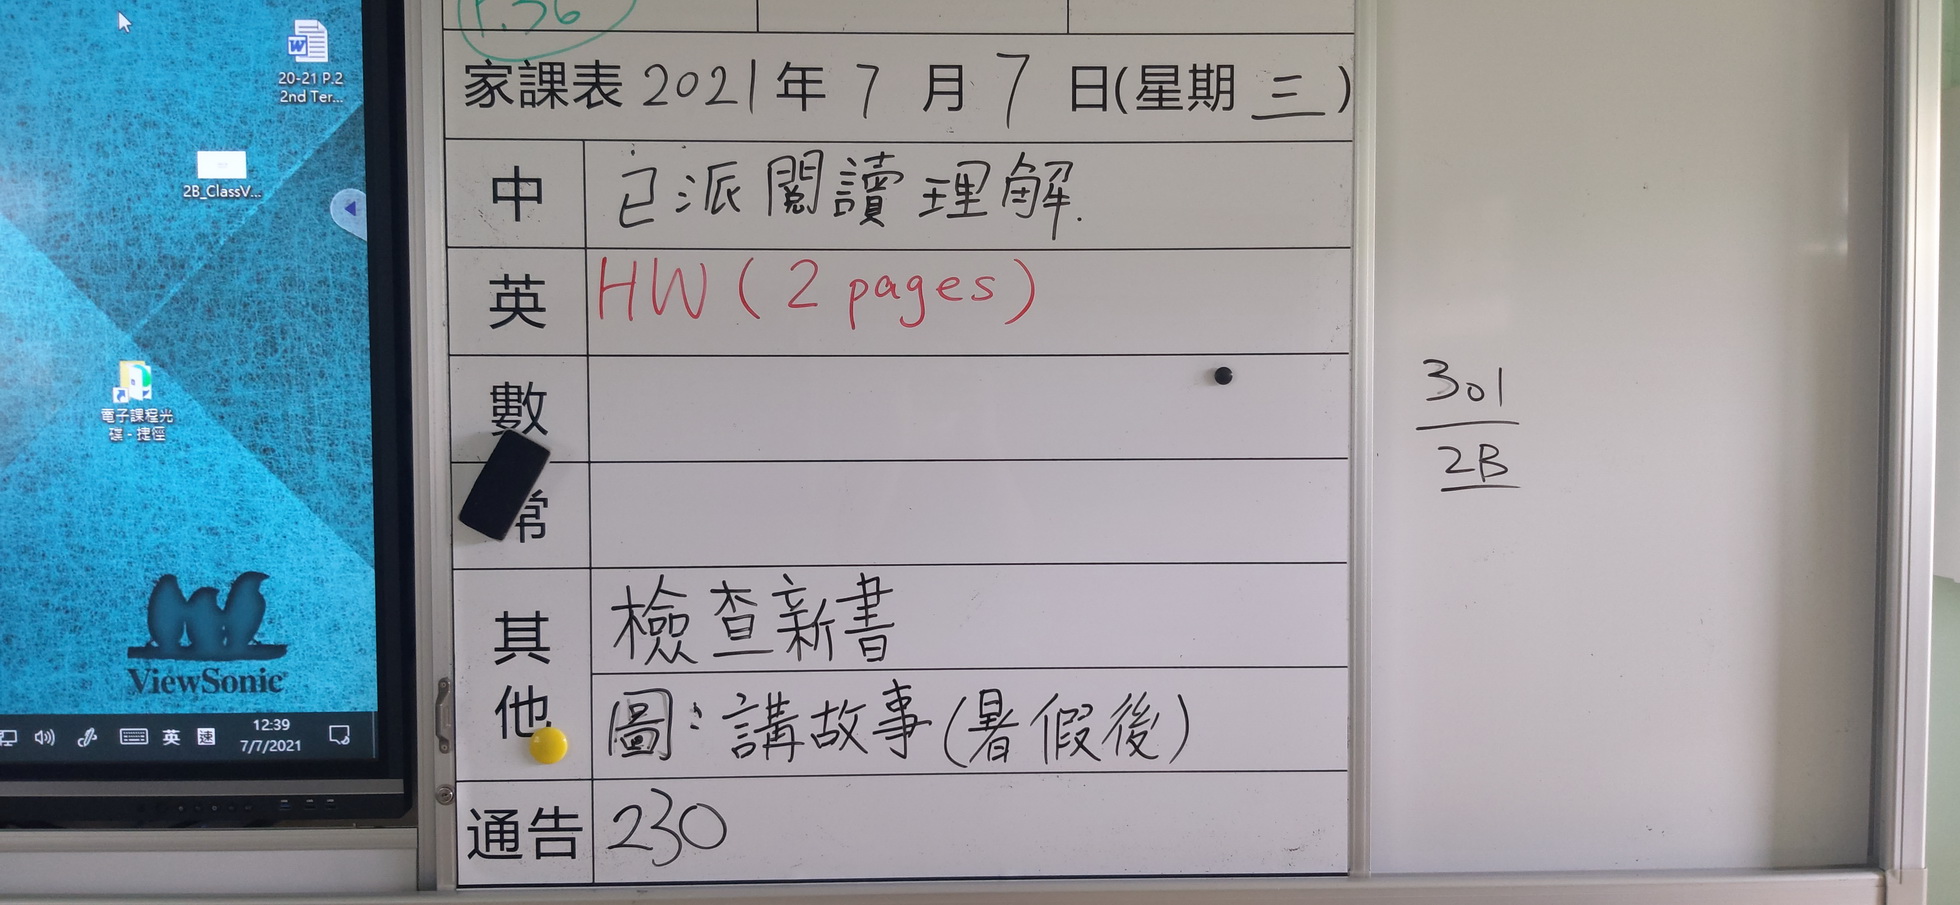 P.36
20-21 P.2
2nd Ter...
2B_ClassV...
電子課程光
碟 - 捷徑
ViewSonic
英 速
12:39
7/7/2021
家課表 2021 年 7 月 7 日(星期 三)
中 已派閱讀理解.
英 HW ( 2 pages )
數
常
其他
檢查新書
圖：講故事(暑假後)
通告 230
301
2B